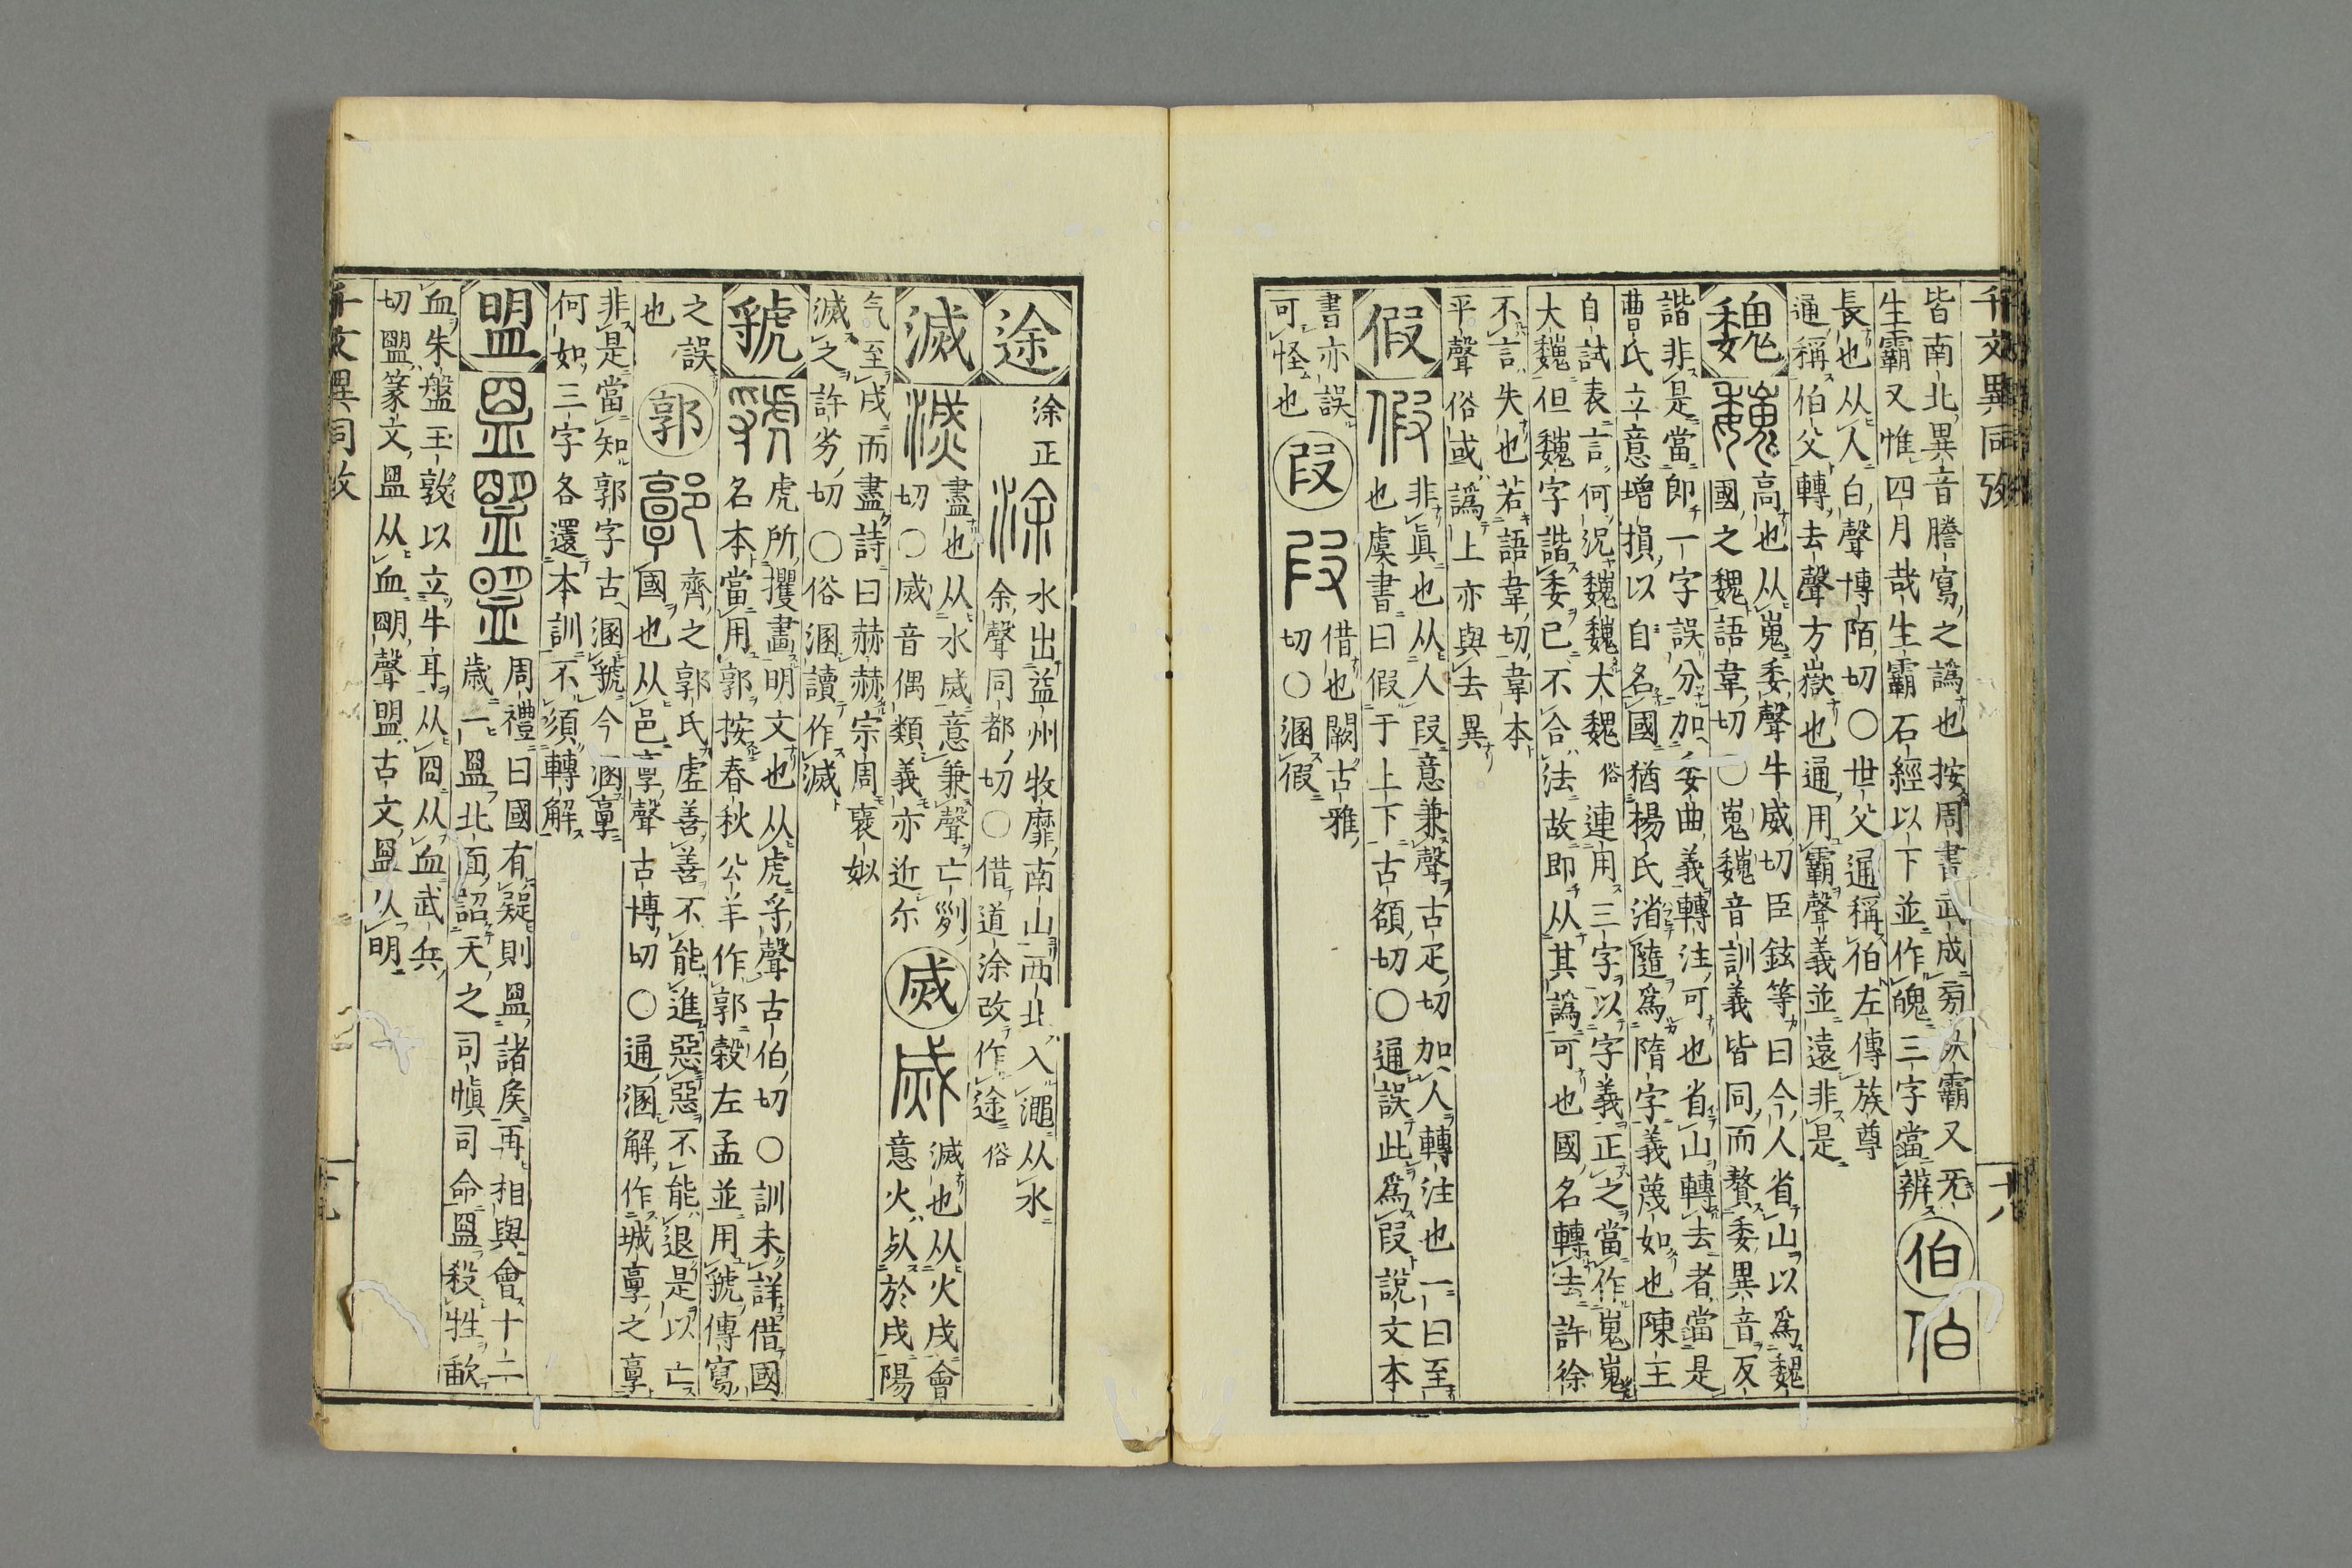 千文異同攷
皆南北異音謄寫之譌也按周書武成旁死霸又旡
生霸又惟四月哉生霸石經以下並作魄三字當辨
伯
長也从人白聲博陌切〇世父通稱伯左傳族尊
通稱伯父轉去聲方嶽也通用霸聲義並遠非是
魏
高也从嵬委聲牛威切臣鉉等曰今人省山以爲魏
國之魏語韋切〇嵬巍音訓義皆同而贅委異音反
諧非是當即一字誤分加委曲義轉注可也省山轉去者當是
曹氏立意增損以自名國猶楊氏渻隨爲隋字義蔑如也陳主
自試表言何況巍魏大魏俗連用三字以字義正之當作嵬嵬
大巍但魏字諧委已不合法故即从其譌可也國名轉去許徐
不言失也若語韋切韋本
平聲俗或譌上亦與去異
假
非眞也从人叚意兼聲古疋切加人轉注也一曰至
也虞書曰假于上下古頟切〇通誤此爲叚說文本
書亦誤
可怪也
叚
借也闕古雅
切〇溷假
十八
途
涂正
水出益州牧靡南山西北入澠从水
余聲同都切〇借道涂改作途俗
滅
盡也从水烕意兼聲亡列
切〇烕音偶類義亦近尒
烕
滅也从火戌會
意火𣦸於戌陽
气至戌而盡詩曰赫赫宗周襃姒
滅之許劣切〇俗溷讀作滅
虢
虎所攫畫明文也从虎寽聲古伯切〇訓未詳借國
名本當用郭按春秋公羊作郭穀左孟並用虢傳寫
之誤
也
郭
齊之郭氏虛善善不能進惡惡不能退是以亡
國也从邑𩫏聲古博切〇通溷解作城𩫏之𩫏
非是當知郭字古溷虢今溷𩫏
何如三字各還本訓不須轉解
盟
周禮曰國有疑則盟諸矦再相與會十二
歳一盟北面詔天之司愼司命盟殺牲歃
血朱盤玉敦以立牛耳从囧从血武兵
切盟篆文盟从血朙聲盟古文盟从明
千文異同攷
十九